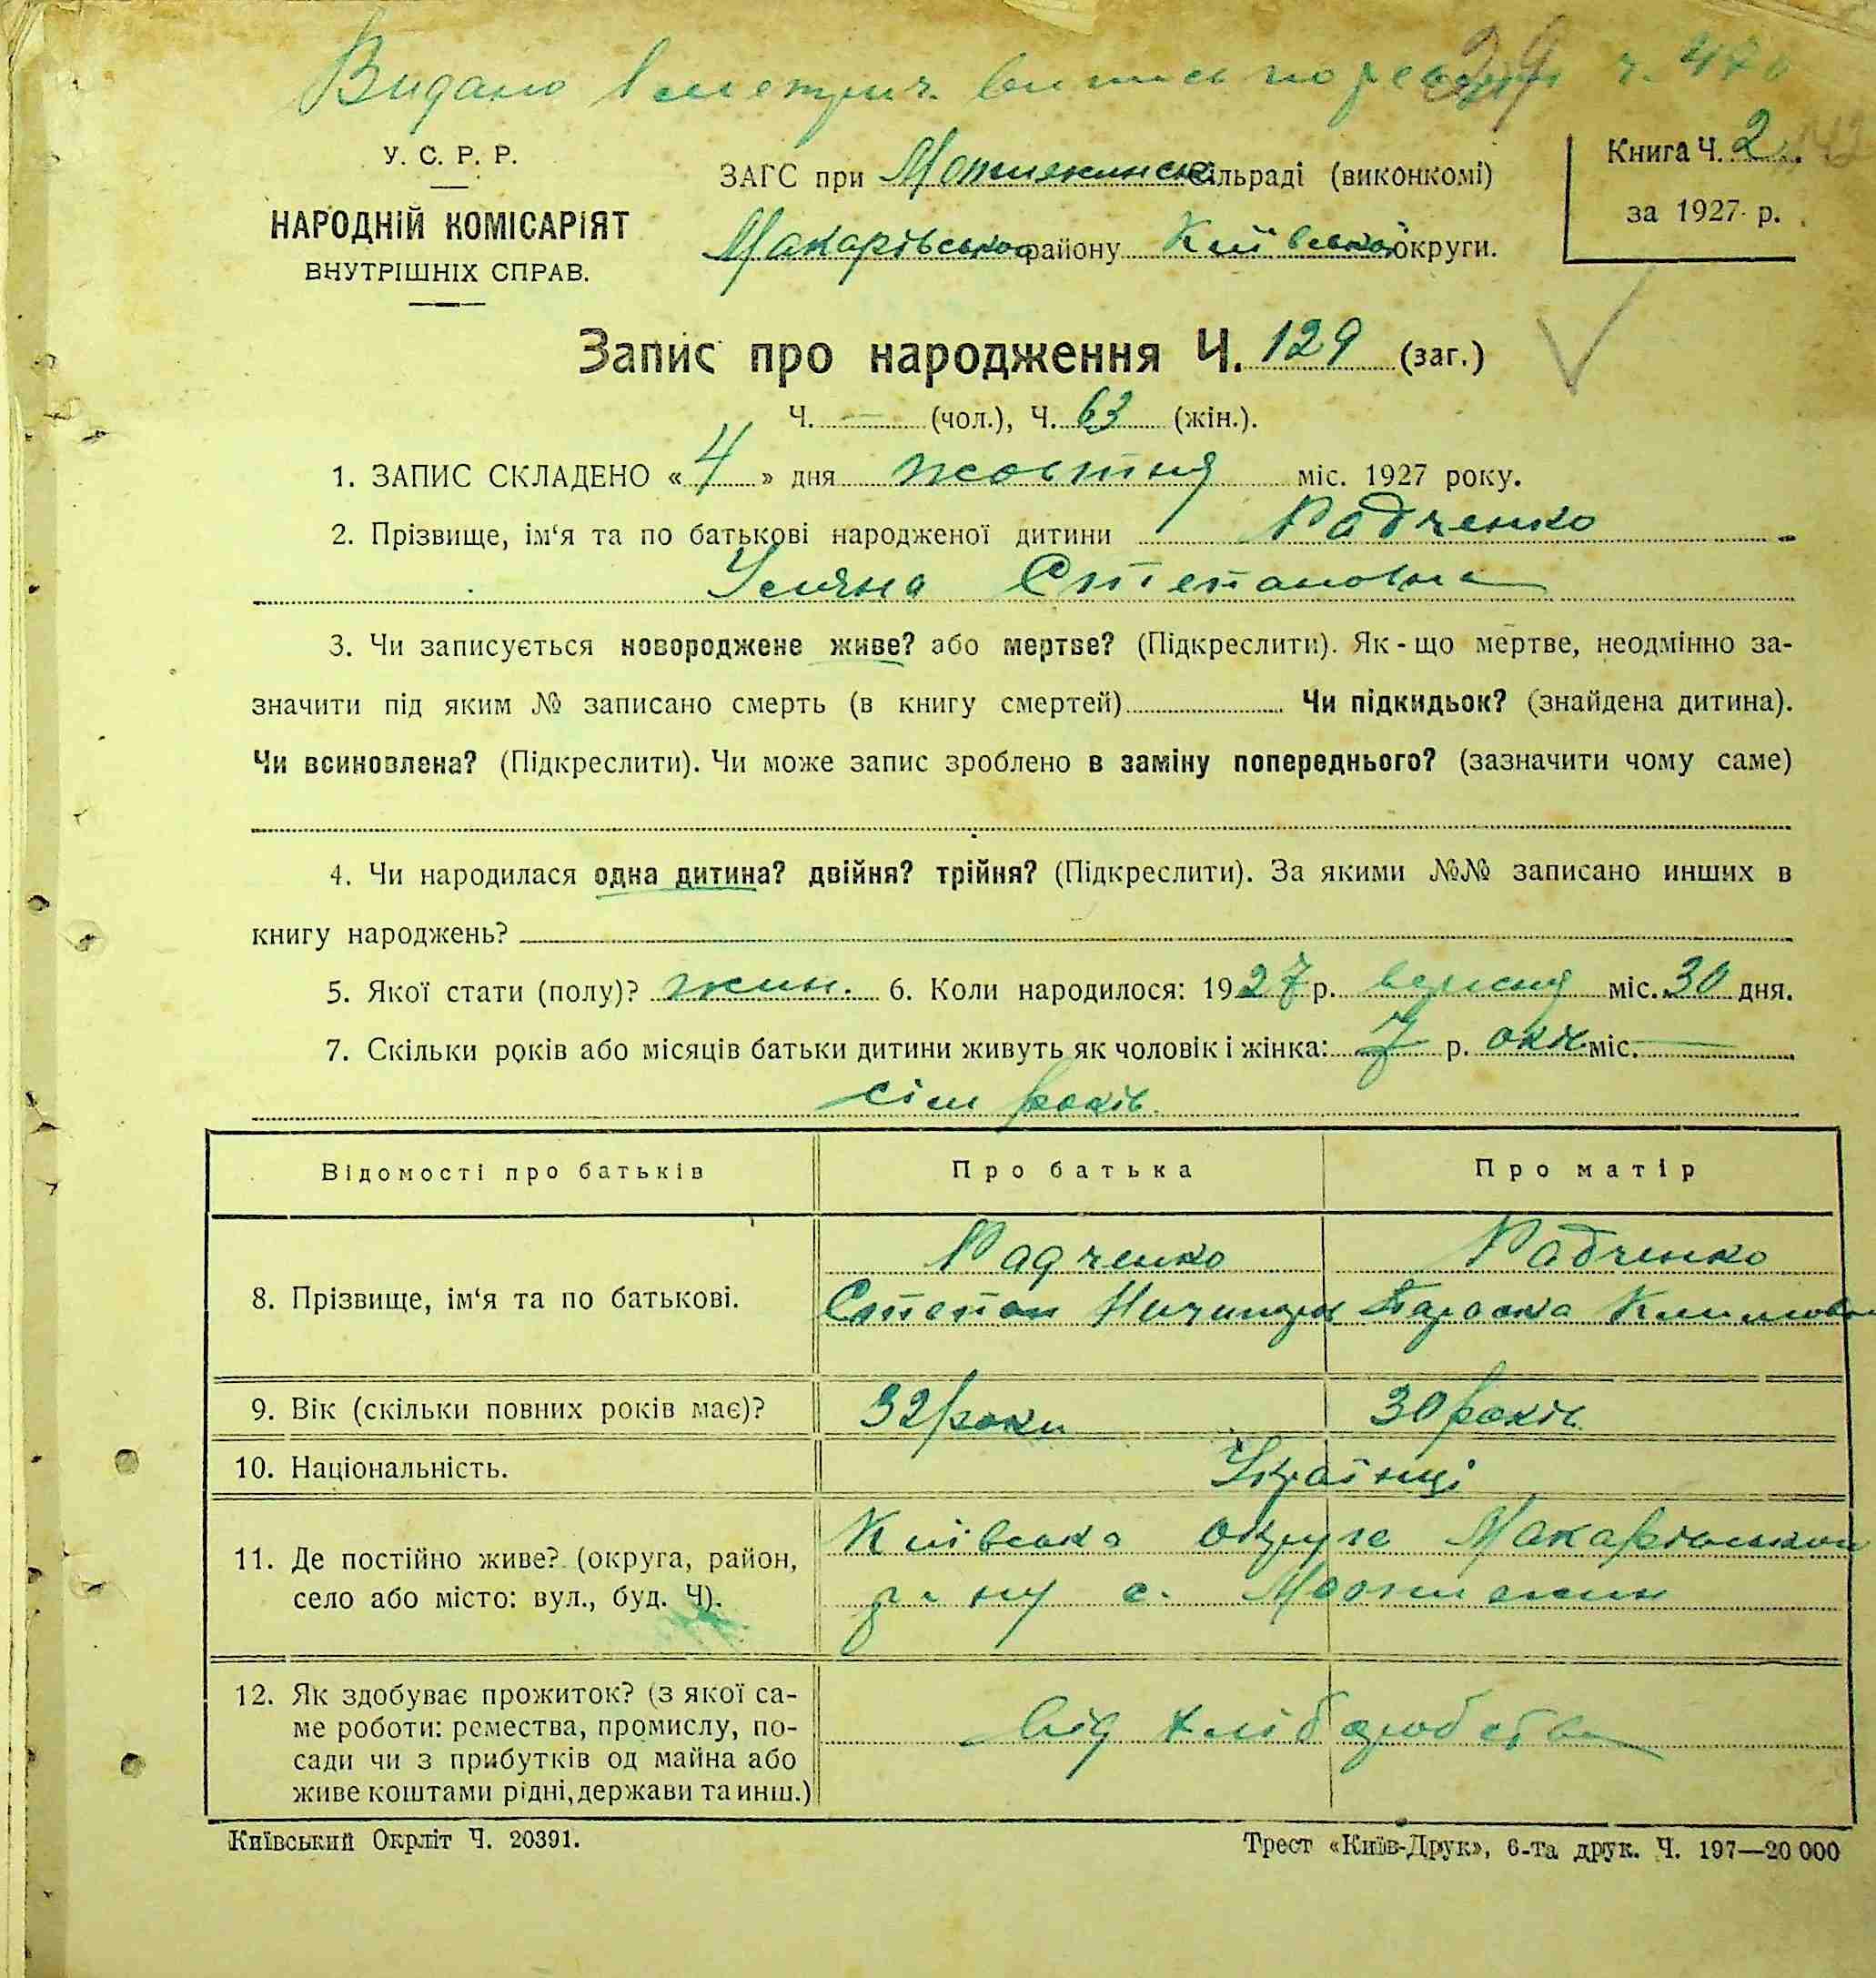 Видано 1 метрич. випись по реєстр ч. 470
39
У. С. Р. Р.
НАРОДНІЙ КОМІСАРІЯТ
ВНУТРІШНІХ СПРАВ.
ЗАГС при сільраді (виконкомі)
Макарівського району Київської округи.
Книга Ч. 2
за 1927 р.
Запис про народження Ч. 129 (заг.)
Ч. — (чол.), Ч. 63 (жін.).
1. ЗАПИС СКЛАДЕНО «4» дня жовтня міс. 1927 року.
2. Прізвище, ім‘я та по батькові народженої дитини Радченко
Уляна Степановна
3. Чи записується новороджене живе? або мертве? (Підкреслити). Як-що мертве, неодмінно за-
значити під яким № записано смерть (в книгу смертей) Чи підкидьок? (знайдена дитина).
Чи всиновлена? (Підкреслити). Чи може запис зроблено в заміну попереднього? (зазначити чому саме)
4. Чи народилася одна дитина? двійня? трійня? (Підкреслити). За якими №№ записано инших в
книгу народжень?
5. Якої стати (полу)? жін. 6. Коли народилося: 1927 р. вересня міс. 30 дня.
7. Скільки років або місяців батьки дитини живуть як чоловік і жінка: 7 р. міс. —
сім років.
Відомості про батьків Про батька Про матір
8. Прізвище, ім‘я та по батькові.
Радченко Радченко
Степан Ничипор Параска Климовна
9. Вік (скільки повних років має)? 32 роки 30 років
10. Національність. Українці
11. Де постійно живе? (округа, район,
село або місто: вул., буд. Ч).
Київська округа Макарівського
р-ну с. Мотижин
12. Як здобуває прожиток? (з якої са-
ме роботи: ремества, промислу, по-
сади чи з прибутків од майна або
живе коштами рідні, держави та инш.)
від хліборобства
Київський Окрліт Ч. 20391.
Трест «Київ-Друк», 6-та друк. Ч. 197—20 000